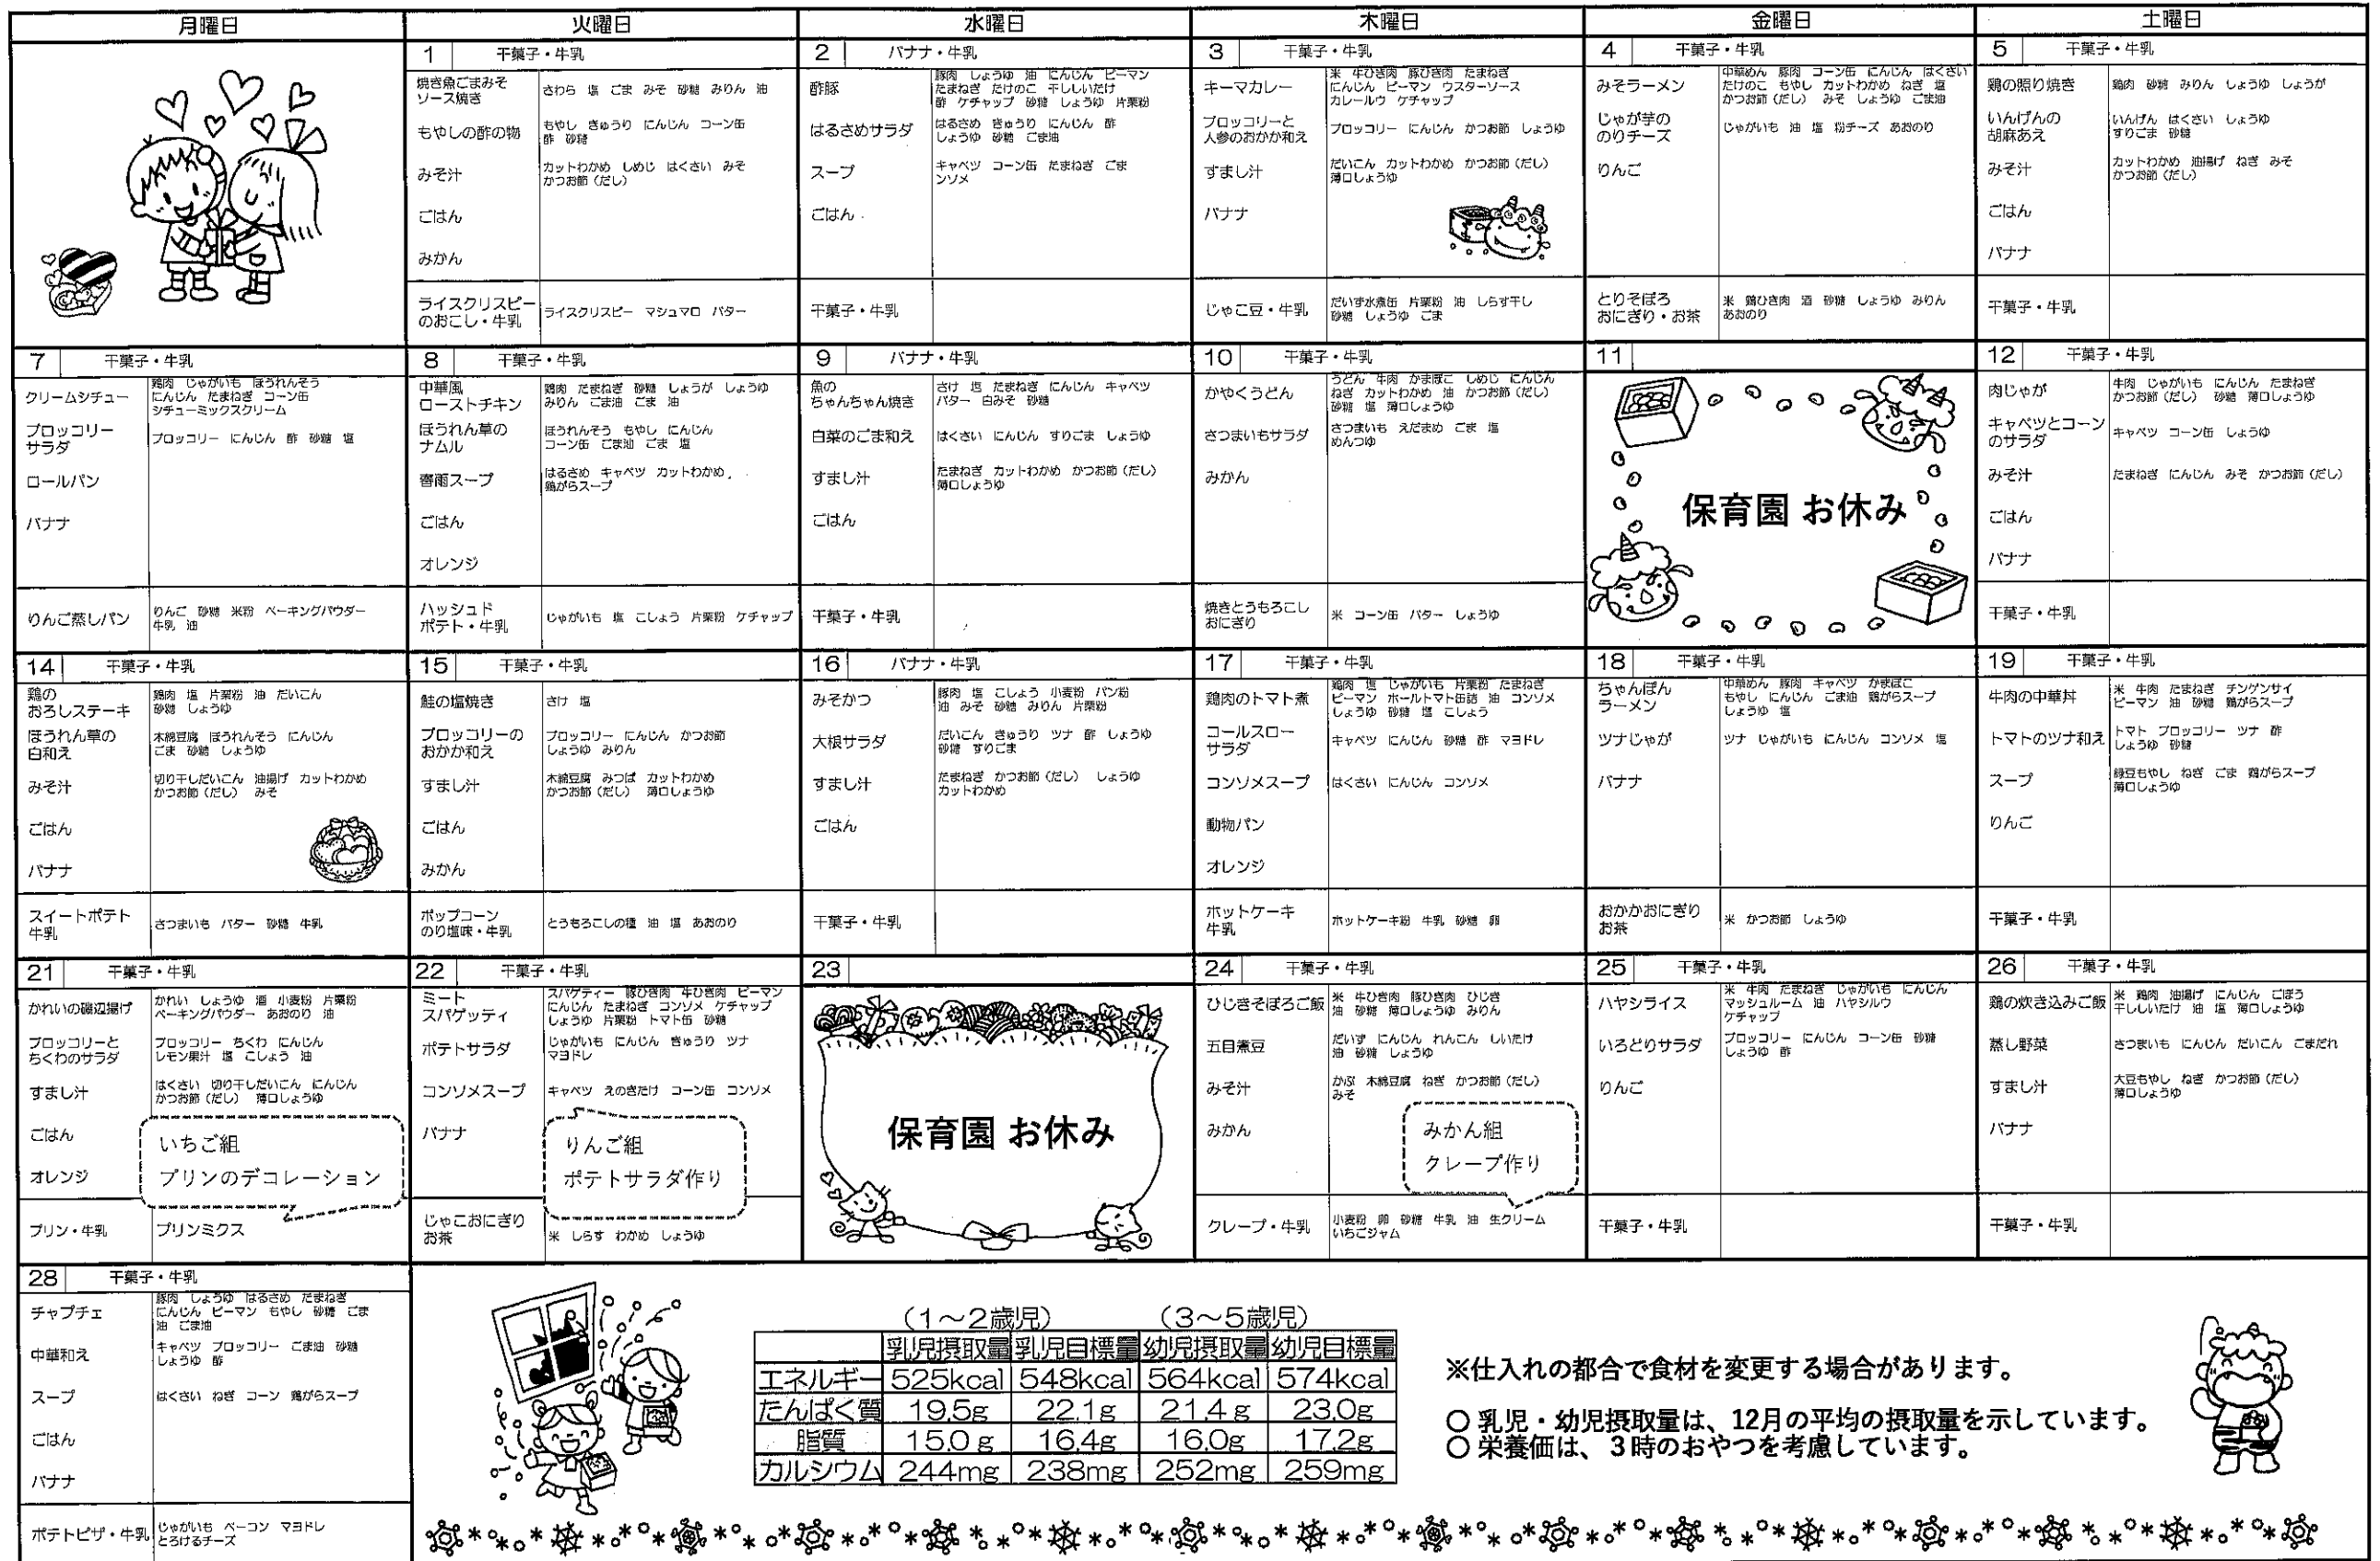 月曜日 火曜日 水曜日 木曜日 金曜日 土曜日
1 干菓子・牛乳
焼き魚ごまみそ
ソース焼き
さわら 塩 ごま みそ 砂糖 みりん 油
もやしの酢の物
もやし きゅうり にんじん コーン缶
酢 砂糖
みそ汁
カットわかめ しめじ はくさい みそ
かつお節(だし)
ごはん
みかん
ライスクリスピー
のおこし・牛乳
ライスクリスピー マシュマロ バター
2 バナナ・牛乳
酢豚
豚肉 しょうゆ 油 にんじん ピーマン
たまねぎ たけのこ 干ししいたけ
酢 ケチャップ 砂糖 しょうゆ 片栗粉
はるさめサラダ
はるさめ きゅうり にんじん 酢
しょうゆ 砂糖 ごま油
スープ
キャベツ コーン缶 たまねぎ ごま
ンソメ
ごはん
干菓子・牛乳
3 干菓子・牛乳
キーマカレー
米 牛ひき肉 豚ひき肉 たまねぎ
にんじん ピーマン ウスターソース
カレールウ ケチャップ
ブロッコリーと
人参のおかか和え
ブロッコリー にんじん かつお節 しょうゆ
すまし汁
だいこん カットわかめ かつお節(だし)
薄口しょうゆ
バナナ
じゃこ豆・牛乳
だいず水煮缶 片栗粉 油 しらす干し
砂糖 しょうゆ ごま
4 干菓子・牛乳
みそラーメン
中華めん 豚肉 コーン缶 にんじん はくさい
たけのこ もやし カットわかめ ねぎ 塩
かつお節(だし) みそ しょうゆ ごま油
じゃが芋の
のりチーズ
じゃがいも 油 塩 粉チーズ あおのり
りんご
とりそぼろ
おにぎり・お茶
米 鶏ひき肉 酒 砂糖 しょうゆ みりん
あおのり
5 干菓子・牛乳
鶏の照り焼き
鶏肉 砂糖 みりん しょうゆ しょうが
いんげんの
胡麻あえ
いんげん はくさい しょうゆ
すりごま 砂糖
みそ汁
カットわかめ 油揚げ ねぎ みそ
かつお節(だし)
ごはん
バナナ
干菓子・牛乳
7 干菓子・牛乳
クリームシチュー
鶏肉 じゃがいも ほうれんそう
にんじん たまねぎ コーン缶
シチューミックスクリーム
ブロッコリー
サラダ
ブロッコリー にんじん 酢 砂糖 塩
ロールパン
バナナ
りんご蒸しパン
りんご 砂糖 米粉 ベーキングパウダー
牛乳 油
8 干菓子・牛乳
中華風
ローストチキン
鶏肉 たまねぎ 砂糖 しょうが しょうゆ
みりん ごま油 ごま 油
ほうれん草の
ナムル
ほうれんそう もやし にんじん
コーン缶 ごま油 ごま 塩
春雨スープ
はるさめ キャベツ カットわかめ
鶏がらスープ
ごはん
オレンジ
ハッシュド
ポテト・牛乳
じゃがいも 塩 こしょう 片栗粉 ケチャップ
9 バナナ・牛乳
魚の
ちゃんちゃん焼き
さけ 塩 たまねぎ にんじん キャベツ
バター 白みそ 砂糖
白菜のごま和え
はくさい にんじん すりごま しょうゆ
すまし汁
たまねぎ カットわかめ かつお節(だし)
薄口しょうゆ
ごはん
干菓子・牛乳
10 干菓子・牛乳
かやくうどん
うどん 牛肉 かまぼこ しめじ にんじん
ねぎ カットわかめ 油 かつお節(だし)
砂糖 塩 薄口しょうゆ
さつまいもサラダ
さつまいも えだまめ ごま 塩
めんつゆ
みかん
焼きとうもろこし
おにぎり
米 コーン缶 バター しょうゆ
11
保育園 お休み
12 干菓子・牛乳
肉じゃが
牛肉 じゃがいも にんじん たまねぎ
かつお節(だし) 砂糖 薄口しょうゆ
キャベツとコーン
のサラダ
キャベツ コーン缶 しょうゆ
みそ汁
たまねぎ にんじん みそ かつお節(だし)
ごはん
バナナ
干菓子・牛乳
14 干菓子・牛乳
鶏の
おろしステーキ
鶏肉 塩 片栗粉 油 だいこん
砂糖 しょうゆ
ほうれん草の
白和え
木綿豆腐 ほうれんそう にんじん
ごま 砂糖 しょうゆ
みそ汁
切り干しだいこん 油揚げ カットわかめ
かつお節(だし) みそ
ごはん
バナナ
スイートポテト
牛乳
さつまいも バター 砂糖 牛乳
15 干菓子・牛乳
鮭の塩焼き
さけ 塩
ブロッコリーの
おかか和え
ブロッコリー にんじん かつお節
しょうゆ みりん
すまし汁
木綿豆腐 みつば カットわかめ
かつお節(だし) 薄口しょうゆ
ごはん
みかん
ポップコーン
のり塩味・牛乳
とうもろこしの種 油 塩 あおのり
16 バナナ・牛乳
みそかつ
豚肉 塩 こしょう 小麦粉 パン粉
油 みそ 砂糖 みりん 片栗粉
大根サラダ
だいこん きゅうり ツナ 酢 しょうゆ
砂糖 すりごま
すまし汁
たまねぎ かつお節(だし) しょうゆ
カットわかめ
ごはん
干菓子・牛乳
17 干菓子・牛乳
鶏肉のトマト煮
鶏肉 塩 じゃがいも 片栗粉 たまねぎ
ピーマン ホールトマト缶詰 油 コンソメ
しょうゆ 砂糖 塩 こしょう
コールスロー
サラダ
キャベツ にんじん 砂糖 酢 マヨドレ
コンソメスープ
はくさい にんじん コンソメ
動物パン
オレンジ
ホットケーキ
牛乳
ホットケーキ粉 牛乳 砂糖 卵
18 干菓子・牛乳
ちゃんぽん
ラーメン
中華めん 豚肉 キャベツ かまぼこ
もやし にんじん ごま油 鶏がらスープ
しょうゆ 塩
ツナじゃが
ツナ じゃがいも にんじん コンソメ 塩
バナナ
おかかおにぎり
お茶
米 かつお節 しょうゆ
19 干菓子・牛乳
牛肉の中華丼
米 牛肉 たまねぎ チンゲンサイ
ピーマン 油 砂糖 鶏がらスープ
トマトのツナ和え
トマト ブロッコリー ツナ 酢
しょうゆ 砂糖
スープ
緑豆もやし ねぎ ごま 鶏がらスープ
薄口しょうゆ
りんご
干菓子・牛乳
21 干菓子・牛乳
かれいの磯辺揚げ
かれい しょうゆ 酒 小麦粉 片栗粉
ベーキングパウダー あおのり 油
ブロッコリーと
ちくわのサラダ
ブロッコリー ちくわ にんじん
レモン果汁 塩 こしょう 油
すまし汁
はくさい 切り干しだいこん にんじん
かつお節(だし) 薄口しょうゆ
ごはん
オレンジ
いちご組
プリンのデコレーション
プリン・牛乳
プリンミクス
22 干菓子・牛乳
ミート
スパゲッティ
スパゲティー 豚ひき肉 牛ひき肉 ピーマン
にんじん たまねぎ コンソメ ケチャップ
しょうゆ 片栗粉 トマト缶 砂糖
ポテトサラダ
じゃがいも にんじん きゅうり ツナ
マヨドレ
コンソメスープ
キャベツ えのきたけ コーン缶 コンソメ
バナナ
りんご組
ポテトサラダ作り
じゃこおにぎり
お茶
米 しらす わかめ しょうゆ
23
保育園 お休み
24 干菓子・牛乳
ひじきそぼろご飯
米 牛ひき肉 豚ひき肉 ひじき
油 砂糖 薄口しょうゆ みりん
五目煮豆
だいず にんじん れんこん しいたけ
油 砂糖 しょうゆ
みそ汁
かぶ 木綿豆腐 ねぎ かつお節(だし)
みそ
みかん
みかん組
クレープ作り
クレープ・牛乳
小麦粉 卵 砂糖 牛乳 油 生クリーム
いちごジャム
25 干菓子・牛乳
ハヤシライス
米 牛肉 たまねぎ じゃがいも にんじん
マッシュルーム 油 ハヤシルウ
ケチャップ
いろどりサラダ
ブロッコリー にんじん コーン缶 砂糖
しょうゆ 酢
りんご
干菓子・牛乳
26 干菓子・牛乳
鶏の炊き込みご飯
米 鶏肉 油揚げ にんじん ごぼう
干ししいたけ 油 塩 薄口しょうゆ
蒸し野菜
さつまいも にんじん だいこん ごまだれ
すまし汁
大豆もやし ねぎ かつお節(だし)
薄口しょうゆ
バナナ
干菓子・牛乳
28 干菓子・牛乳
チャプチェ
豚肉 しょうゆ はるさめ たまねぎ
にんじん ピーマン もやし 砂糖 ごま
油 ごま油
中華和え
キャベツ ブロッコリー ごま油 砂糖
しょうゆ 酢
スープ
はくさい ねぎ コーン 鶏がらスープ
ごはん
バナナ
ポテトピザ・牛乳
じゃがいも ベーコン マヨドレ
とろけるチーズ
(1~2歳児) (3~5歳児)
乳児摂取量 乳児目標量 幼児摂取量 幼児目標量
エネルギー 525kcal 548kcal 564kcal 574kcal
たんぱく質 19.5g 22.1g 21.4g 23.0g
脂質 15.0g 16.4g 16.0g 17.2g
カルシウム 244mg 238mg 252mg 259mg
※仕入れの都合で食材を変更する場合があります。
○ 乳児・幼児摂取量は、12月の平均の摂取量を示しています。
○ 栄養価は、3時のおやつを考慮しています。